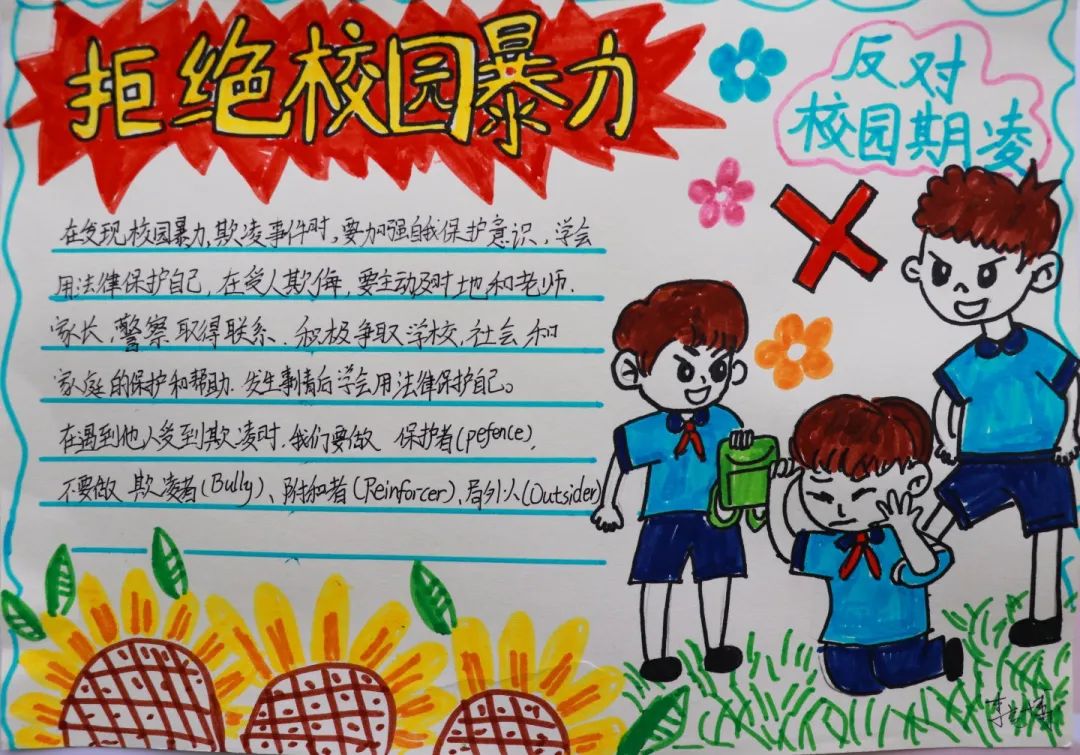 拒绝校园暴力
反对
校园期凌
在发现校园暴力,欺凌事件时,要加强自我保护意识、学会
用法律保护自己,在受人欺侮,要主动及时地和老师.
家长,警察取得联系.积极争取学校,社会和
家庭的保护和帮助.发生事情后学会用法律保护自己。
在遇到他人受到欺凌时.我们要做 保护者(pefence),
不要做 欺凌者(Bully)、附和者(Reinforcer)、局外人(Outsider)